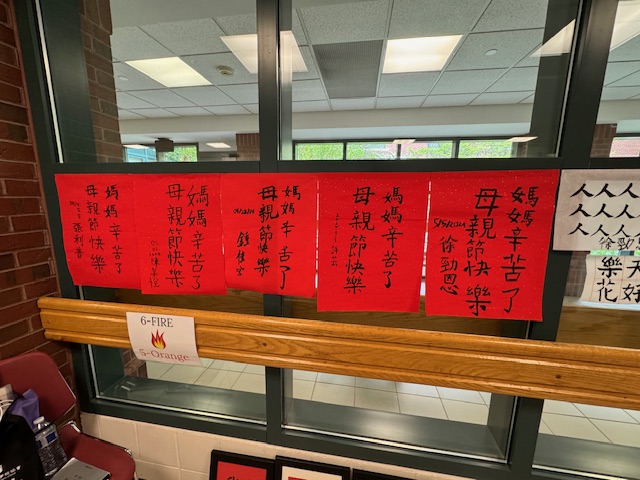 媽媽辛苦了
母親節快樂
媽媽辛苦了
母親節快樂
媽媽辛苦了
母親節快樂
媽媽辛苦了
母親節快樂
媽媽辛苦了
母親節快樂
徐勁恩
人人人
人人人
人人人
徐勁恩
樂
花好
6-FIRE
5-Orange